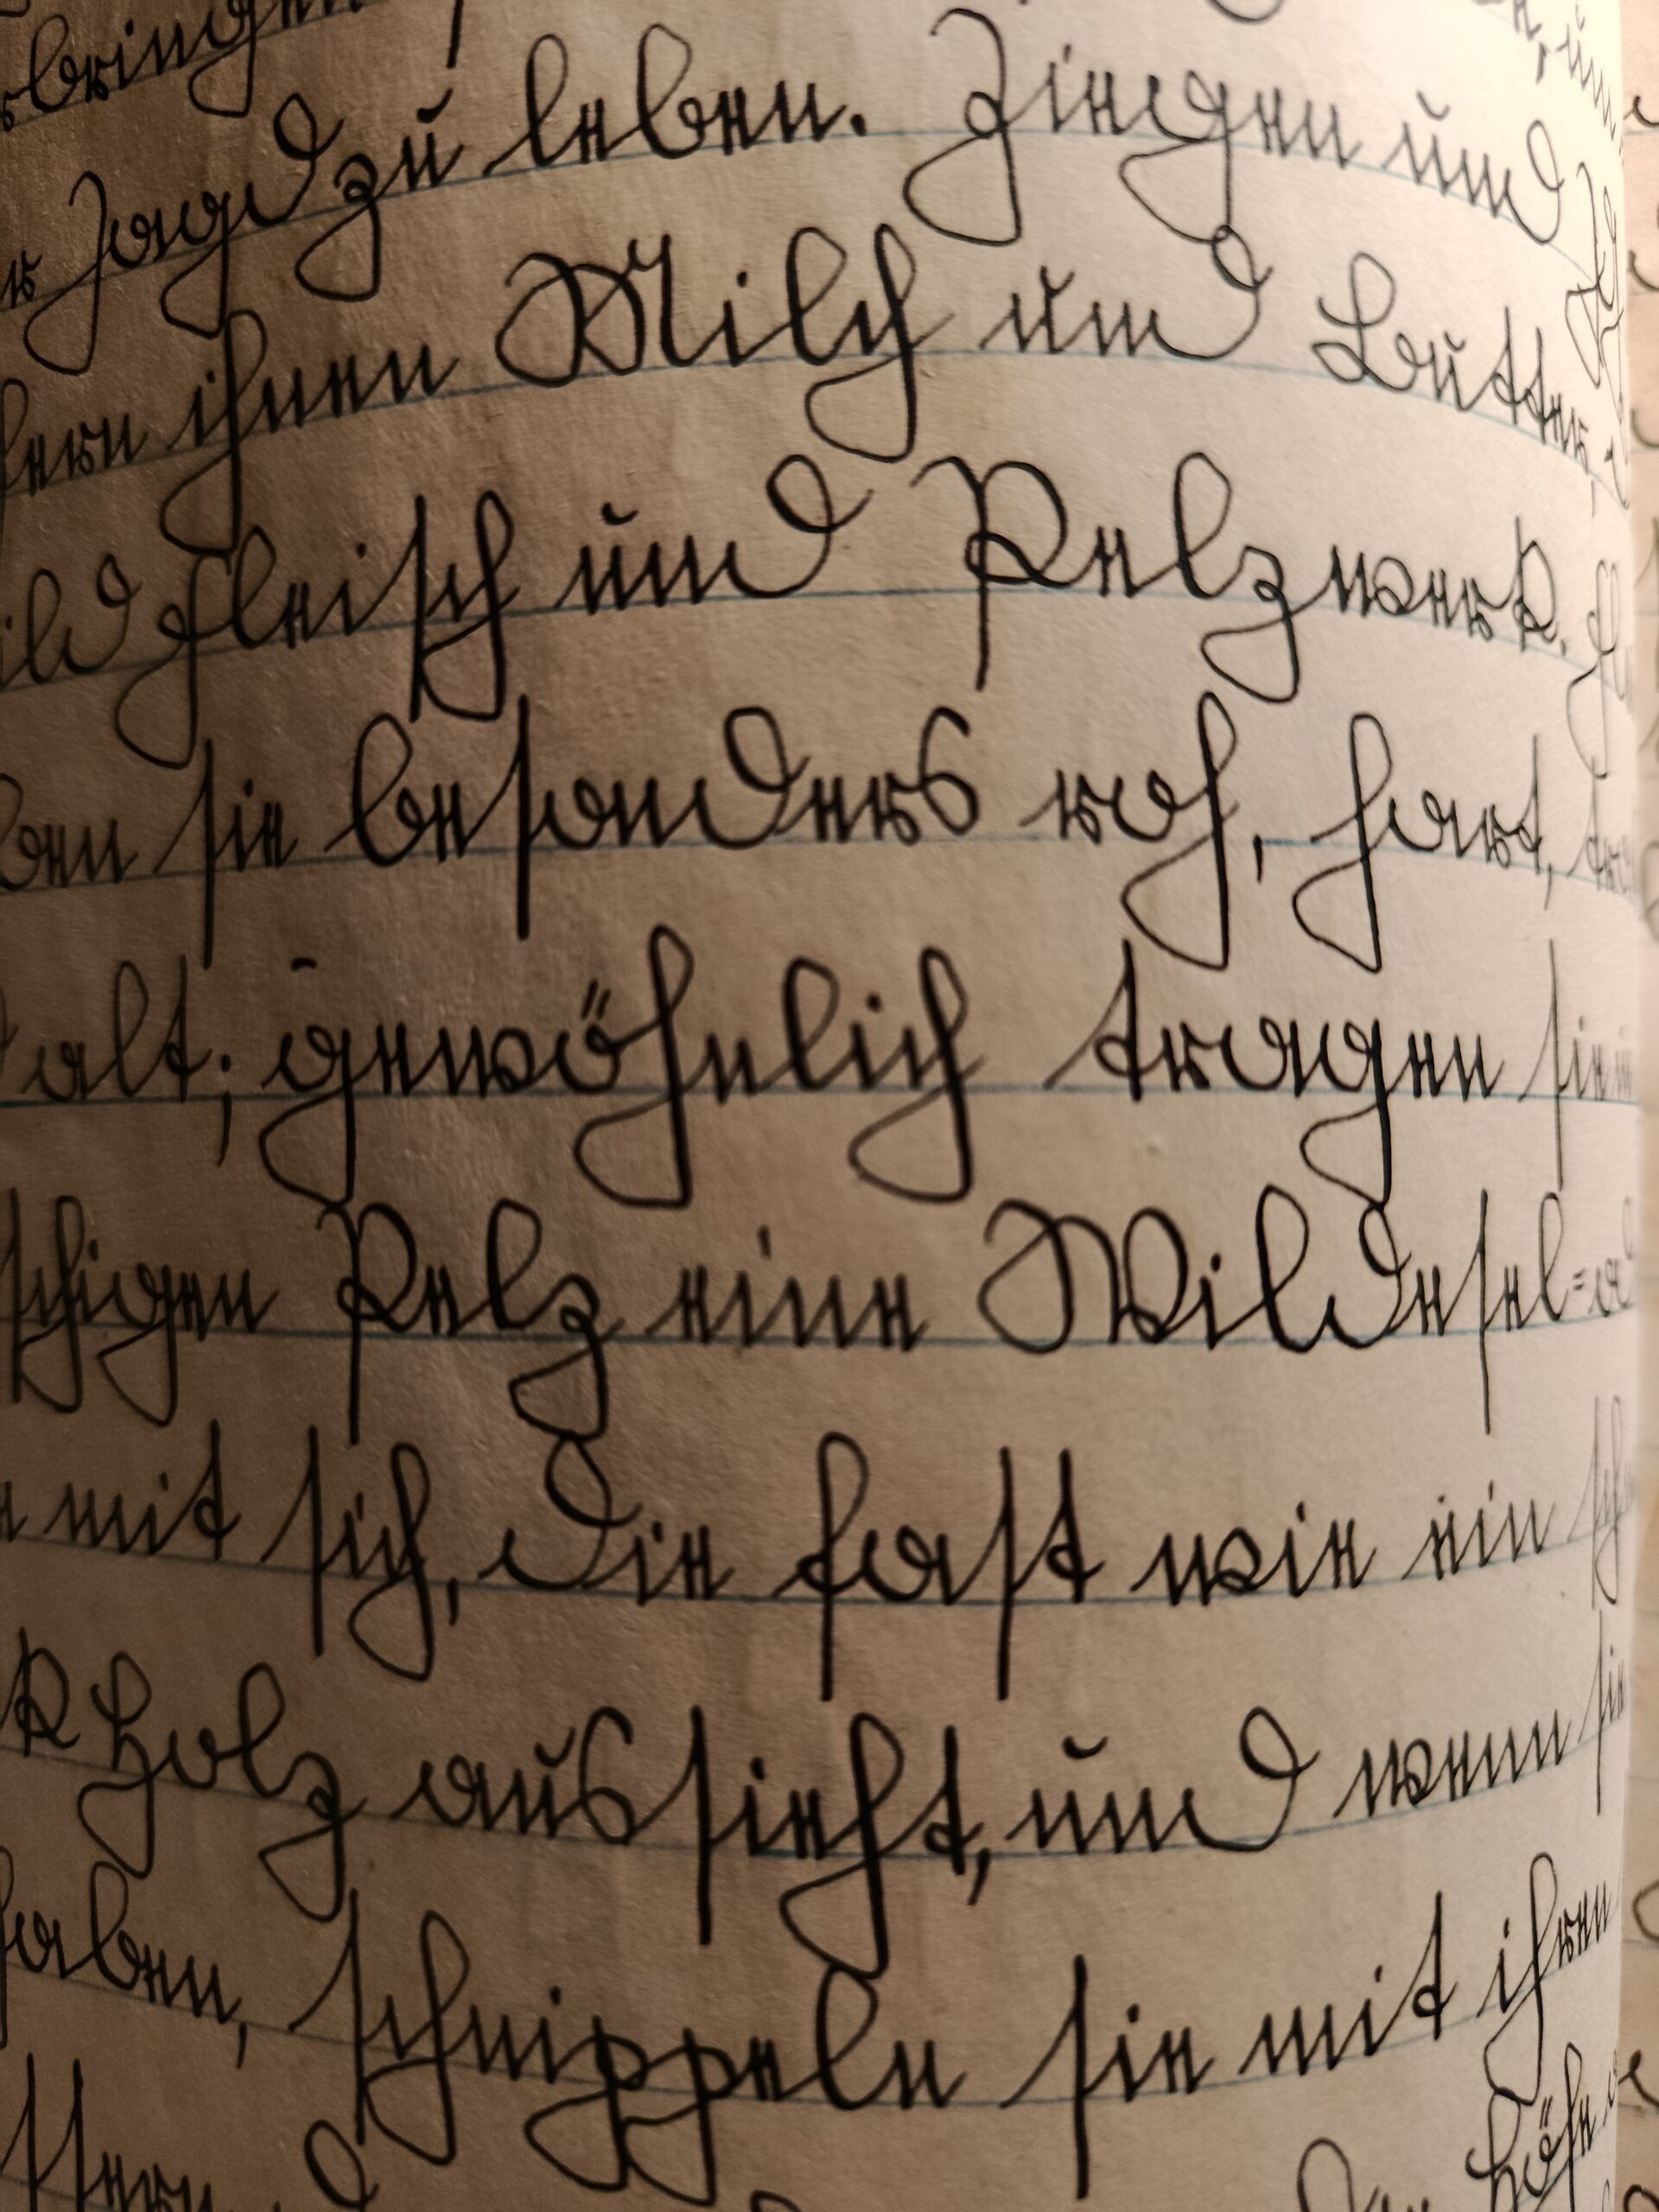 bringen
Jagd zu leben. Ziegen und
ihnen Milch und Butter,
ildfleisch und Pelzwerk.
sie besonders roh, hart,
alt; gewöhnlich tragen sie
schigen Pelz eine Wildesel=
mit sich, die fast wie ein
k Holz aussieht, und wenn sie
haben, schnippeln sie mit ihren